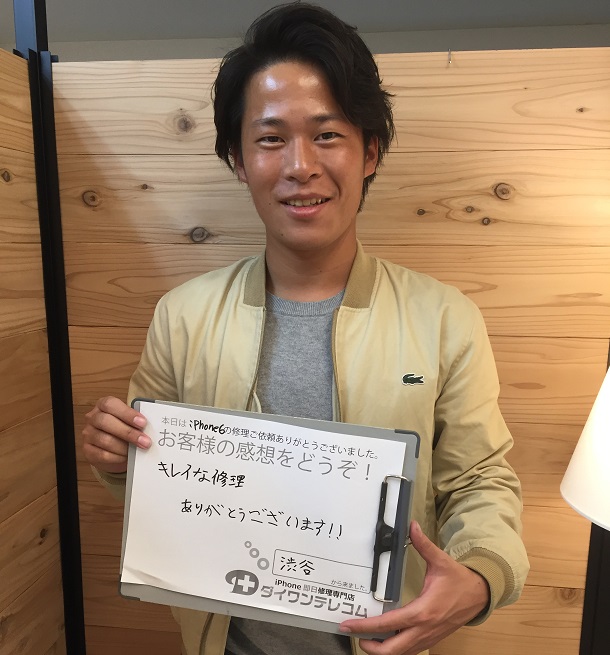 本日は iPhone6の修理ご依頼ありがとうございました。
お客様の感想をどうぞ！
キレイな修理
ありがとうございます!!
渋谷 から来ました。
iPhone 即日修理専門店
ダイワンテレコム